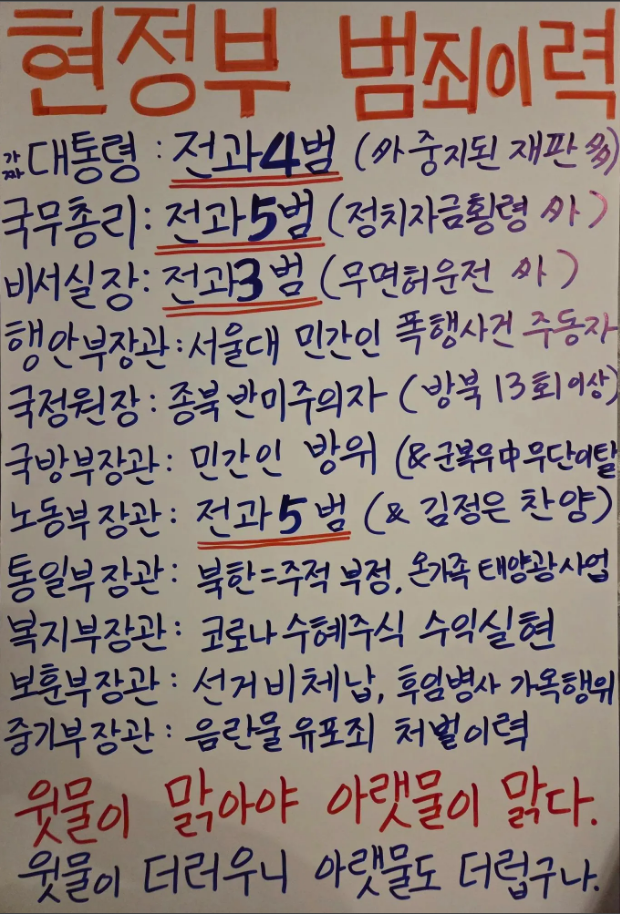 현정부 범죄이력
가짜 대통령 : 전과4범 (外 중지된 재판 多)
국무총리 : 전과5범 (정치자금횡령 外)
비서실장 : 전과3범 (무면허운전 外)
행안부장관 : 서울대 민간인 폭행사건 주동자
국정원장 : 종북반미주의자 (방북 13회이상)
국방부장관 : 민간인 방위 (&군복무中무단이탈
노동부장관 : 전과5범 (& 김정은 찬양)
통일부장관 : 북한=주적 부정, 온가족 태양광사업
복지부장관 : 코로나 수혜주식 수익실현
보훈부장관 : 선거비체납, 후임병사 가혹행위
중기부장관 : 음란물유포죄 처벌이력
윗물이 맑아야 아랫물이 맑다.
윗물이 더러우니 아랫물도 더럽구나.